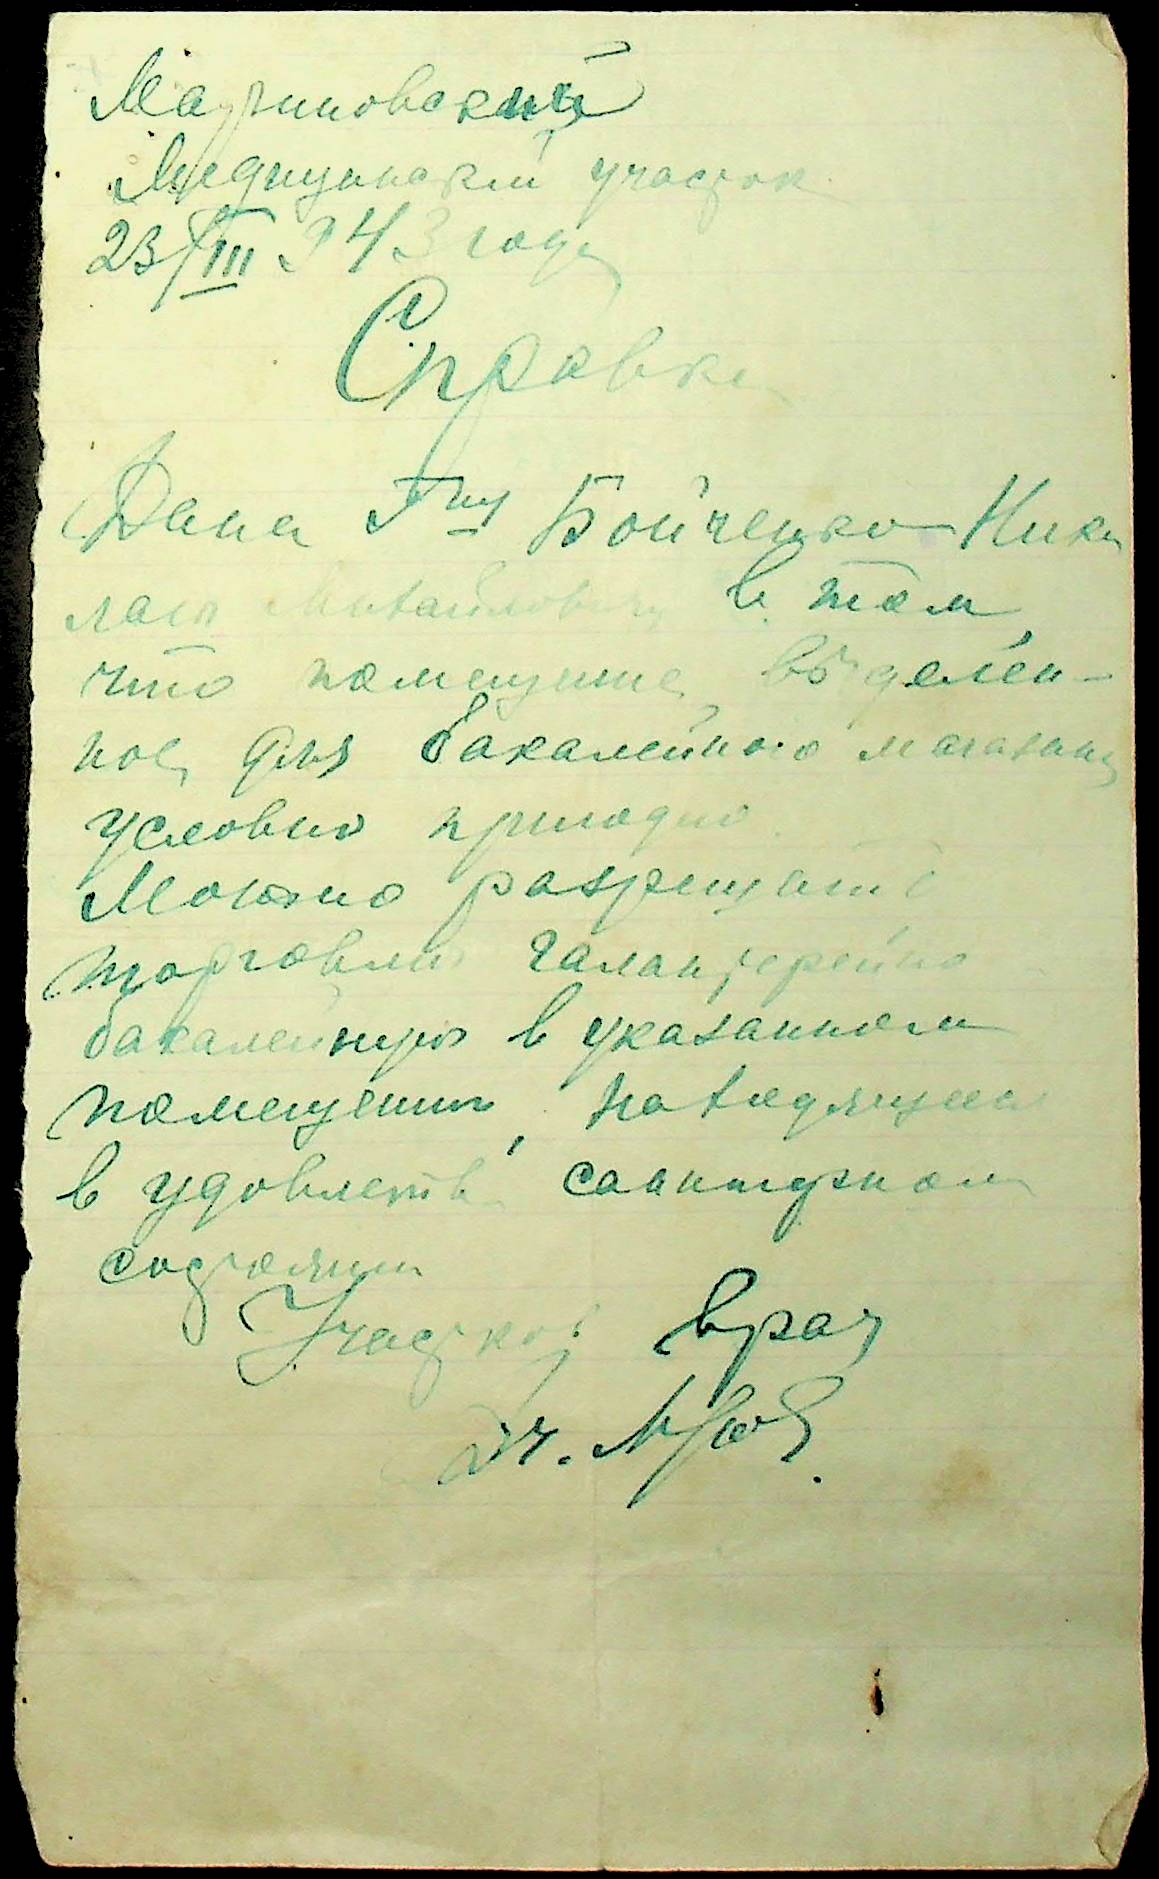 Мартиновский
Медицинский участок
23/III 943 года
Справка
Дана Г-ну Бойченко Нико
лаю Михайловичу в том,
что помещение, выделен-
ное для бакалейного магазина
условно пригодно.
Можно разрешить
торговлю галантерейно
бакалейную в указанном
помещении, находящемся
в удовлетв. санитарном
состоянии
Участков врач